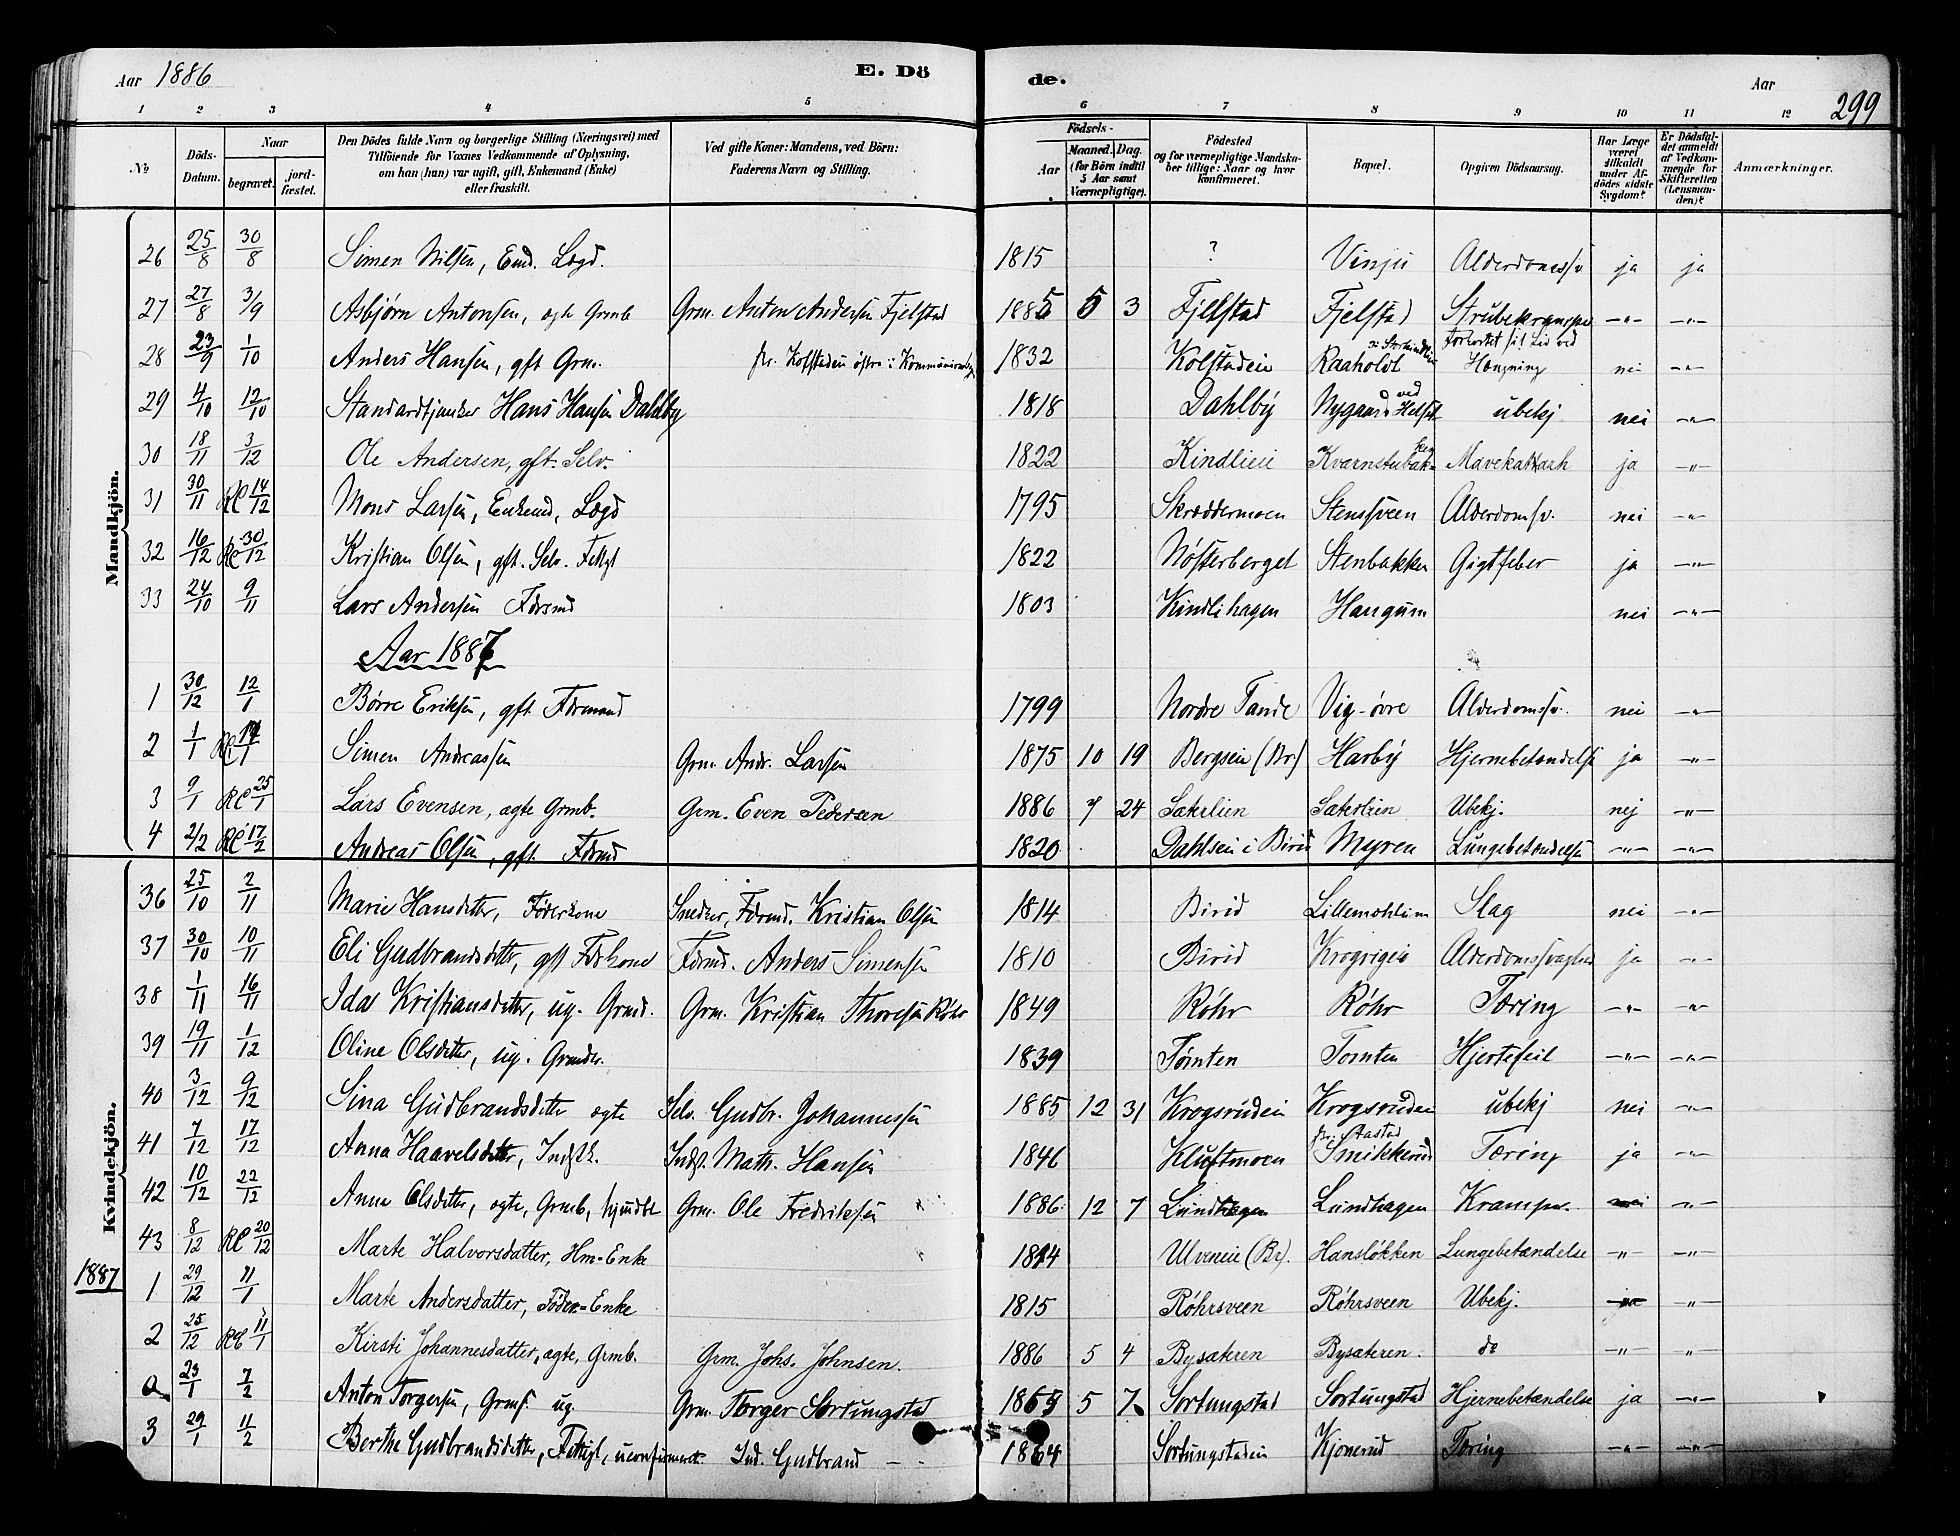 Aar 1886 E. Dö de. Aar 299
1 2 3 4 5 6 7 8 9 10 11 12
No Döds-Datum. Naar begravet. jordfæstet. Den Dödes fulde Navn og borgerlige Stilling (Næringsvei) med Tilföiende for Voxnes Vedkommende af Oplysning, om han (hun) var ugift, gift, Enkemand (Enke) eller fraskilt. Ved gifte Koner: Mandens, ved Börn: Faderens Navn og Stilling. Födsels- Aar Maaned. Dag. (for Börn indtil 5 Aar samt Værnepligtige). Födested og for værnepligtige Mandskaber tillige: Naar og hvor konfirmeret. Bopæl. Opgiven Dödsaarsag. Har Læge været tilkaldt under Afdödes sidste Sygdom? Er Dödsfaldet anmeldt af Vedkommende for Skifteretten (Lensmanden)? Anmærkninger.
Mandkjön.
26 25/8 30/8 Simen Nilsen, Lægd. 1815 ? Alderdomssv. ja ja
27 27/8 3/9 Asbjørn Antonsen, ægte Grmb Grm. Anton Andersen Fjelstad 1885 5 3 Fjelstad Fjelstad Strubekrampe -"- -"-
28 23/9 1/10 Anders Hansen, gft Grm. 1832 Kolstadeie Raaholdt Forkortet sit Liv ved Hængning nei -"-
29 4/10 12/10 Standardtjunker Hans Hansen Dahlby 1818 Dahlby Nygaard ved ubekj nei -"-
30 18/11 3/12 Ole Andersen, gft. Selv. 1822 Kindlieie Mavekatarh ja -"-
31 30/11 RC 14/12 Mons Larsen, Enkemd, Lægd 1795 Skræddermoen Stenssveen Alderdomssv. nei -"-
32 16/12 RC 30/12 Kristian Olsen, gft. Selv. Fattgt 1822 Nøsterberget Stenbakken Gigtfeber ja -"-
33 24/10 9/11 Lars Andersen Fdrmd 1803 Kindlihagen Haugum nei -"-
Aar 1887
1 30/12 12/1 Børre Eriksen, gft. Fdrmand 1799 Nordre Tande Vig-øvre Alderdomssv. nei -"-
2 1/1 RC 14/1 Simen Andreassen Grm. Andr. Larsen 1875 10 19 Bergseie (Br) Harby Hjernebetændelse ja -"-
3 9/1 RC 25/1 Lars Evensen, ægte Grmb. Grm. Even Pedersen 1886 7 24 Sæterlien Sæterlien Ubekj. nej -"-
4 2/2 RC 17/2 Andreas Olsen, gft. Fdrmd 1820 Dahlseie i Birid Myren Lungebetændelse -"- -"-
Kvindekjön.
36 25/10 2/11 Marie Hansdatter, Føderkone Snedker, Fdrmd. Kristian Olsen 1814 Birid Slag nei -"-
37 30/10 10/11 Eli Gudbrandsdatter, gft Fdrkone Fdrmd. Anders Simensen 1810 Birid Alderdomssvaghed ja -"-
38 1/11 16/11 Ida Kristiansdatter, ug. Grmd. Grm. Kristian Thoresen Røhr 1849 Røhr Røhr Tæring -"- -"-
39 19/11 1/12 Oline Olsdatter, ug. Grmdr. 1839 Tømten Tomten Hjertefeil -"- -"-
40 3/12 9/12 Sina Gudbrandsdatter ægte Selv. Gudbr. Johannesen 1885 12 31 Krogsrudeie Krogsrudeie ubekj nei -"-
41 7/12 17/12 Anna Haavelsdatter, Indstk. Indst. Math. Hansen 1846 Kluftmoen fr. Aastad Smikkerud Tæring ja -"-
42 10/12 22/12 Anna Olsdatter, ægte, Grmb, hjmdbt Grm. Ole Fredriksen 1886 12 7 Lundhagen Lundhagen Krampe. nei -"-
43 8/12 RC 20/12 Marte Halvorsdatter, Hm-Enke 1814 Ulveneie (Br). Hansløkken Lungebetændelse -"- -"-
1887
1 29/12 11/1 Marte Andersdatter, Føder-Enke 1815 Røhrsveen Røhrsveen Ubekj. ja -"-
2 25/12 RC 11/1 Kirsti Johannesdatter, ægte, Grmb. Grm. Johs. Johnsen. 1886 5 4 Bysæteren Bysæteren. do -"- -"-
a 23/1 7/2 Anton Torgersen, Grmf. ug. Grm. Torger Sortungstad 1869 5 7 Sortungstad Sortungstad Hjernebetændelse ja -"-
3 29/1 11/2 Berthe Gudbrandsdatter, Fattigl, uconfirmeret. Ind. Gudbrand 1864 Sortungstadeie Kjonerud Tæring -"- -"-